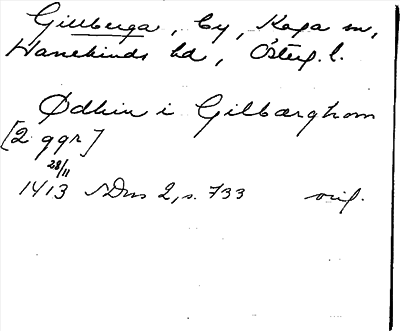 Gillberga, by, Kaga sn,
Hanekinds hd, Österg. l.
Ødhin i Gilbærghom
[2 ggr]
28/11
1413 SDns 2, s. 733 orig.